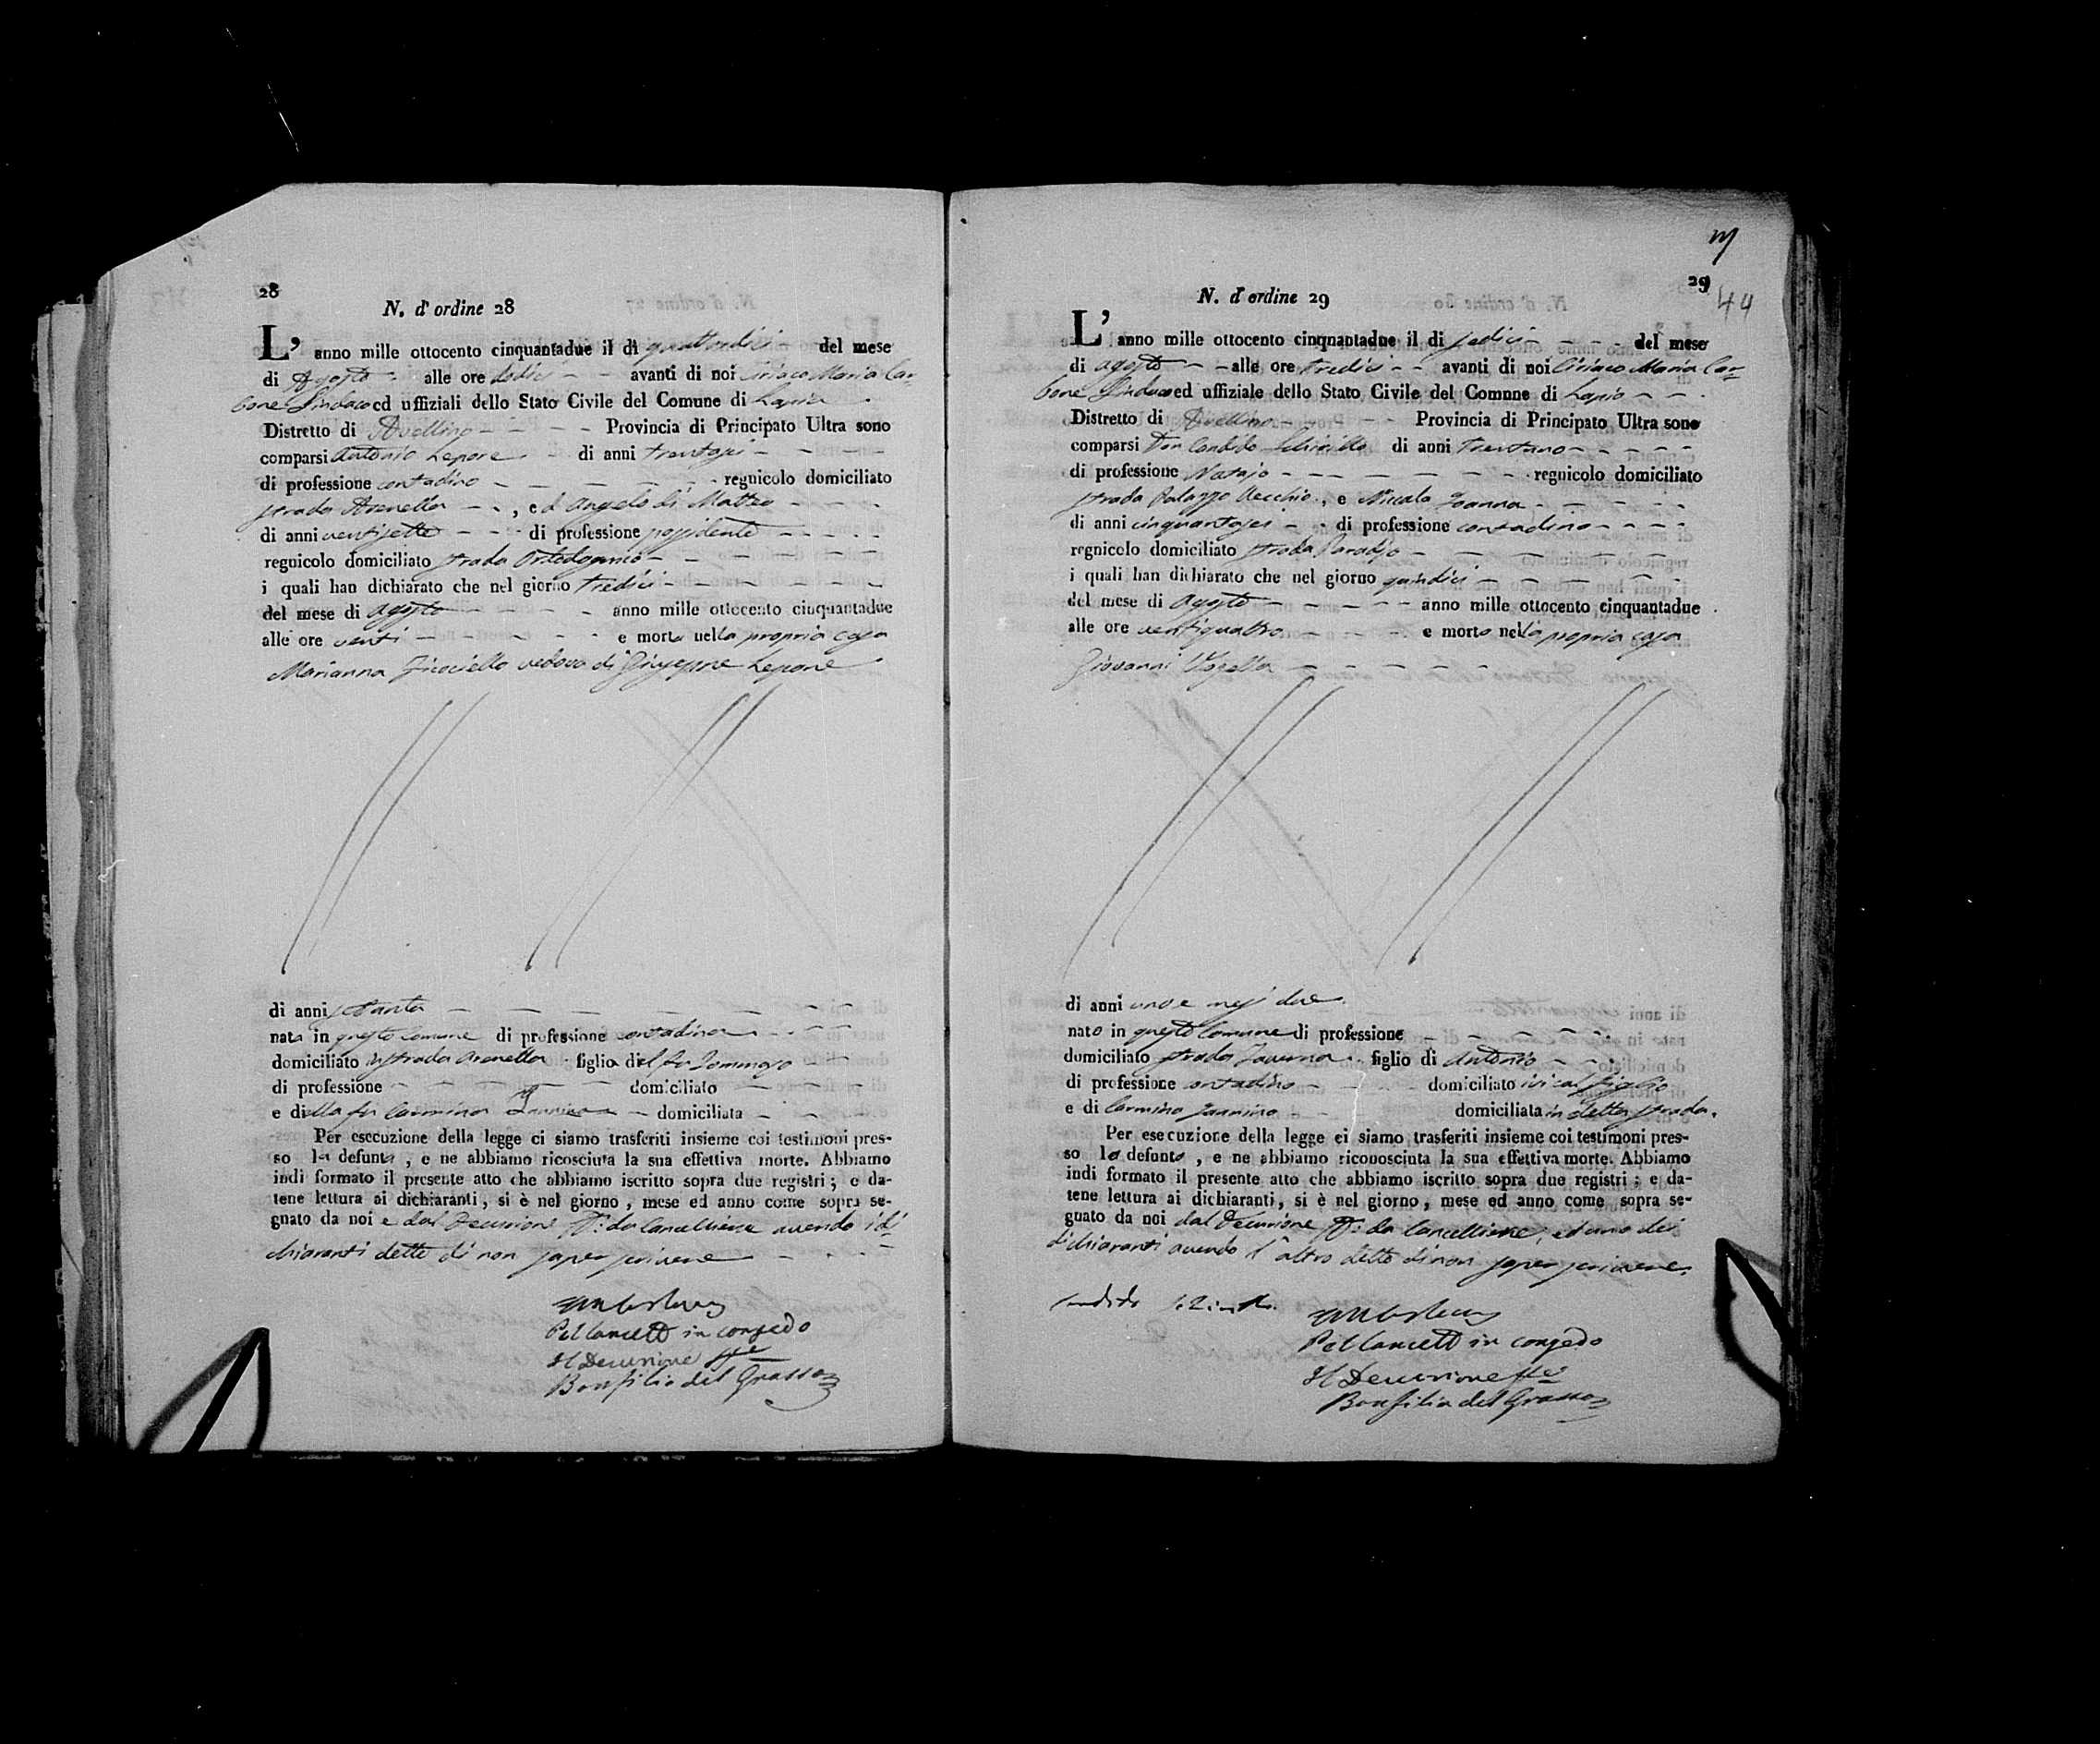 28
N. d' ordine 28
L' anno mille ottocento cinquantadue il di quattordici del mese
di Agosto alle ore dodici avanti di noi Ciriaco Maria Car-
bone Sindaco ed uffiziali dello Stato Civile del Comune di Lapio
Distretto di Avellino Provincia di Principato Ultra sono
comparsi Antonio Lepore di anni trentasei
di professione contadino regnicolo domiciliato
strada Arenella , ed Angelo di Matteo
di anni ventisette di professione possidente
regnicolo domiciliato strada
i quali han dichiarato che nel giorno tredici
del mese di Agosto anno mille ottocento cinquantadue
alle ore venti e morta nella propria casa
Marianna vedova di Giuseppe Lepore
di anni settanta
nata in questo comune di professione contadina
domiciliato in strada Arenella figlia del fu
di professione domiciliato
e di ella fu Carmina domiciliata
Per esecuzione della legge ci siamo trasferiti insieme coi testimoni pres-
so la defunta , e ne abbiamo ricosciuta la sua effettiva morte. Abbiamo
indi formato il presente atto che abbiamo iscritto sopra due registri ; e da-
tene lettura ai dichiaranti , si è nel giorno , mese ed anno come sopra se-
gnato da noi e dal Decurione ff: da Cancelliere avendo i di
chiaranti detto di non saper scrivere
Pel Cancell in congedo
Il Decurione ff
Bonfilio del Grasso
29
44
N. d' ordine 29
L' anno mille ottocento cinquantadue il di sedici del mese
di agosto alle ore tredici avanti di noi Ciriaco Maria Car-
bone Sindaco ed uffiziale dello Stato Civile del Comune di Lapio
Distretto di Avellino Provincia di Principato Ultra sono
comparsi Don Candido di anni trentuno
di professione Notajo regnicolo domiciliato
strada Palazzo Vecchio , e Niccola Ioanna
di anni cinquantasei di professione contadino
regnicolo domiciliato strada Paradiso
i quali han dichiarato che nel giorno quindici
del mese di Agosto anno mille ottocento cinquantadue
alle ore ventiquattro e morto nella propria casa
Giovanni
di anni uno e mesi due
nato in questo Comune di professione
domiciliato strada Taverna figlio di Antonio
di professione contadino domiciliato ivi col figlio
e di Carmina domiciliata in detta strada.
Per esecuzione della legge ci siamo trasferiti insieme coi testimoni pres-
so lo defunto , e ne abbiamo riconosciuta la sua effettiva morte. Abbiamo
indi formato il presente atto che abbiamo iscritto sopra due registri ; e da-
tene lettura ai dichiaranti , si è nel giorno , mese ed anno come sopra se-
gnato da noi dal Decurione ff: da Cancelliere, ed uno dei
dichiaranti avendo l'altro detto di non saper scrivere.
Candido
Pel Cancell in congedo
Il Decurione ff
Bonfilio del Grasso